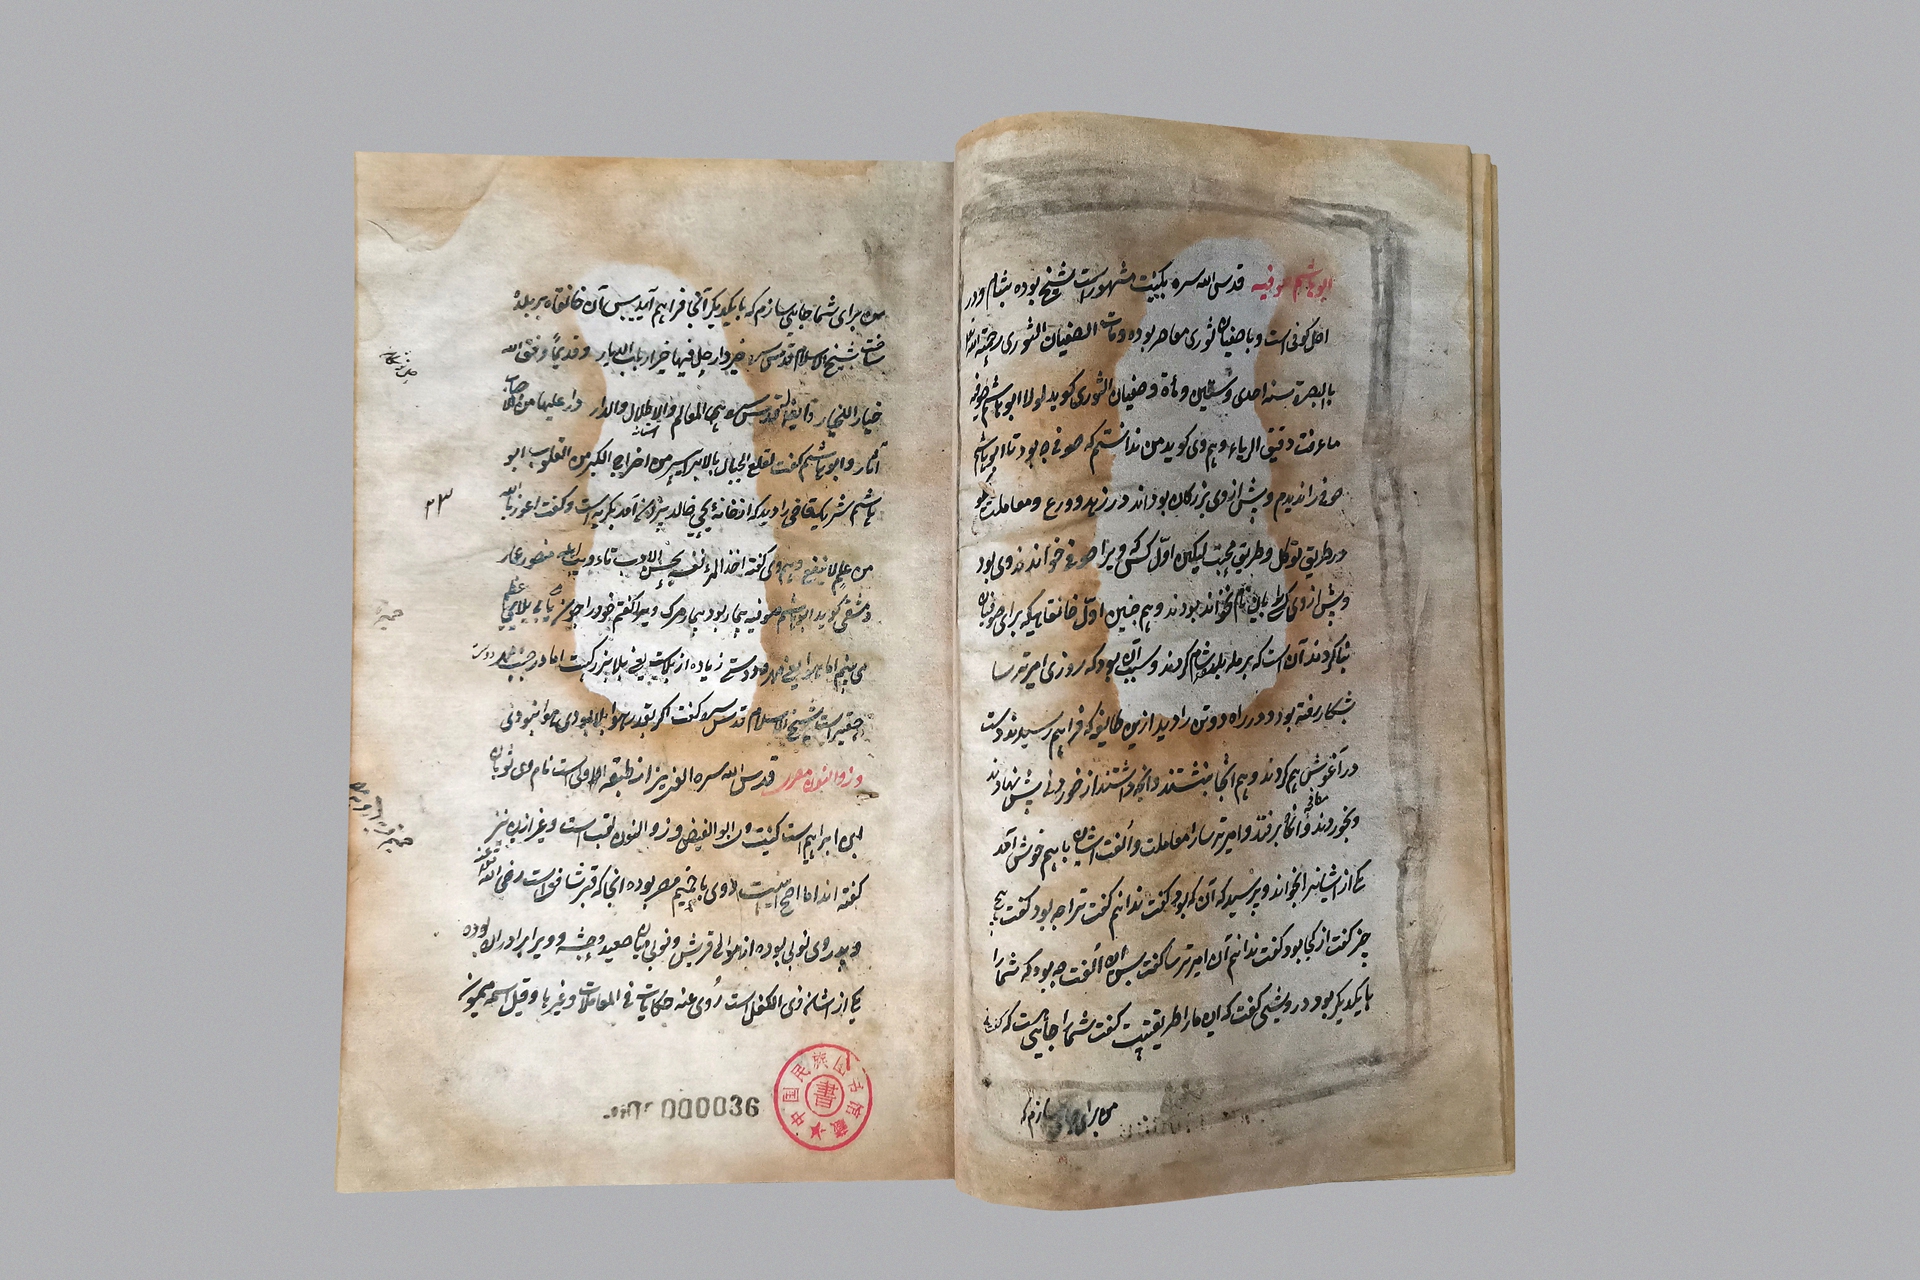 ابو هاشم صوفیه قدس الله سره بکنیت مشهور است شیخ بوده بشام و در
اصل کوفی است و با صفیان ثوری معاصر بوده و مات الصفیان الثوری رحمة الله
بالبصرة سنه احدی و ستین و مأة و صفیان الثوری کوید لولا ابو هاشم صوفیه
ما عرفت دقیق الریاء و هم وی کوید من ندانستم که صوفی چه بود تا ابو هاشم
صوفی را ندیدم و پیش از وی بزرکان بوداند در زهد و ورع و معاملت نیکو
در طریق توکل و طریق محبت لیکن اول کسی که ویرا صوفی خواندند وی بود
و پیش از وی کسی را باین نام نخواند بودند و هم چنین اول خانقاهیکه برای صوفیان
بنا کردند آن است که برمله بلد شام کردند و سبب آن بود که روزی امیر ترسا
بشکار رفته بود در راه دو تن را دید ازین طایفه که فراهم رسیدند دست
در آغوش هم کردند و هم آنجا بنشستند و آنچه داشتند از خوردنی پیش نهادند
و بخوردند و آنکاه برفتند و امیر ترسا را معاملت و الفت ایشان با هم خوش آمد
یکی از ایشانرا بخواند و پرسید که آن که بود کفت ندانم کفت ترا چه بود کفت هیچ
چیز کفت از کجا بود کفت ندانم آن امیر ترسا کفت پس این الفت چه بود که شما را
با یکدیکر بود درویش کفت که این ما را طریقتیست کفت شما را جائی هست که
من برای سازم که
من برای شما جایی سازم که با یکدیکر آنجا فراهم آیید پس آن خانقاه برمله
ساخت شیخ الاسلام قدس سره خیر دار حل فیها خیر ارباب الدیار و قدیما وفق الله
خیار اللخیار قدس سره هی المعالم والاطلال والدار دار علیها من
آثار و ابو هاشم کفت لقلع الجبال بالابر ایسر من اخراج الکبر من القلوب ابو
هاشم شریک قاضی را دید که از خانهٔ یحیی خالد بیرون آمد بکریست و کفت اعوذ بالله
۲۳
من علم لا ینفع و هم وی کفته اخذ المرء نفسه بحسن الادب تادیب اهله منصور عمار
دمشقی کوید ابو هاشم صوفیه بیمار بود بیمار مرک ویرا کفتم خود را چون می یابی بلایی عظیم
می بینم اما هوا یعنی مهر و دوستی زیاده از بلاست یعنی بلا بزرکست اما در جنب مهر دوست
حقیر است شیخ الاسلام قدس سره کفت اکر بقدر هوا بلا بودی هوا نبودی
و ذو النون مصری قدس الله سره العزیز از طبقه اولی است نام وی ثوبان
ابن ابراهیم است کنیت وی ابو الفیض و ذو النون لقب است و غیر ازین نیز
کفته اند اما اصح اینست وی باخمیم مصر بوده آنجا که قبر شافعی است رضی الله عنه
و پدر وی نوبی بوده از موالی قریش و نوبی میان صعید و حبشه و ویرا برادران بوده
یکی از ایشان ذی الکفل است روی عنه حکایات فی المعاملات و غیرها و قیل اسمه میمون
000036
中国民族图书馆藏
書